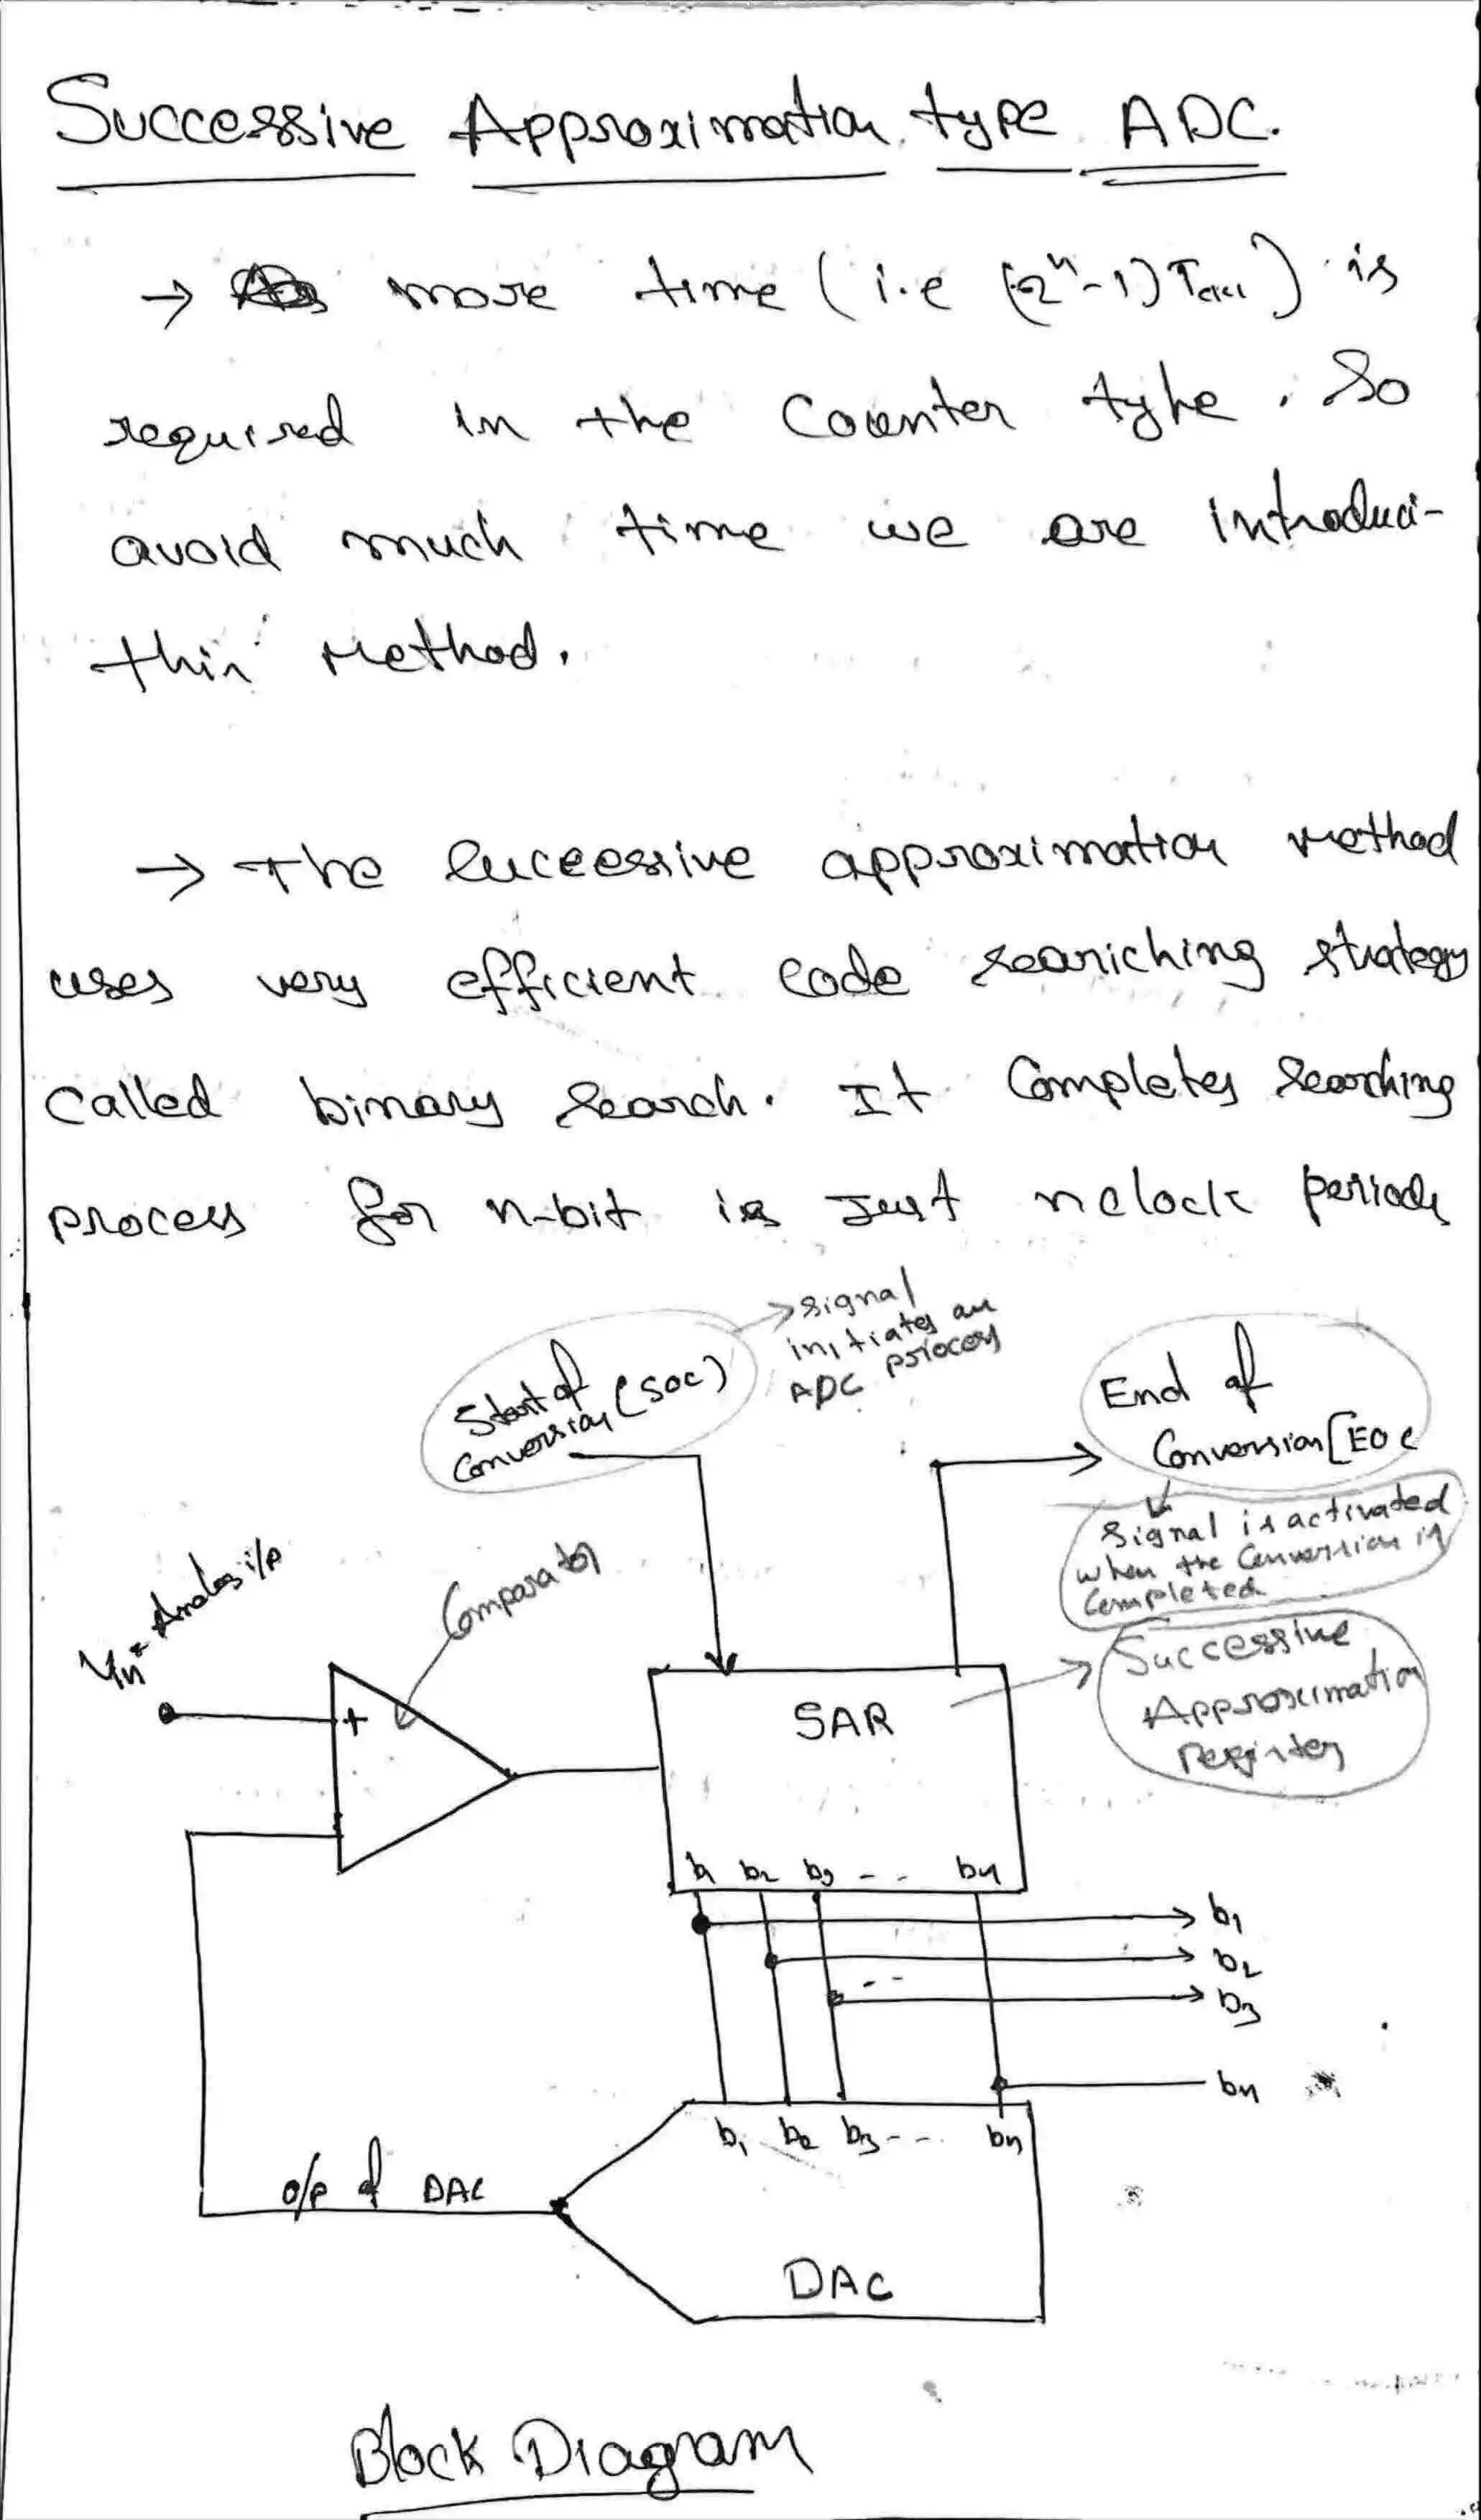 Successive Approximation type ADC.
→ more time (i.e (2ⁿ-1) Tclk) is
required in the Counter type. So
avoid much time we are introduci-
this Method.
→ The successive approximation method
uses very efficient code seariching strategy
Called binary search. It Completes searching
process for n-bit is Just n clock periods
→ signal
initiates an
ADC process
Start of
Conversion (SOC)
End of
Conversion [EOC
Signal is activated
when the Conversion is
Completed
Vin = Analog i/p
Comparator
Successive
Approximation
Register
+
SAR
b1 b2 b3 - - bn
b1
b2
- -
b3
bn
b1 b2 b3 - - - bn
o/p of DAC
DAC
Block Diagram